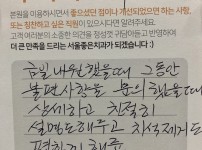 본원을 이용하시면서 좋으셨던 점이나 개선되었으면 하는 사항,
또는 칭찬하고 싶은 직원이 있으시다면 알려주세요.
고객 여러분의 소중한 의견을 정성껏 귀담아듣고 반영하여
더 큰 만족을 드리는 서울좋은치과가 되겠습니다 :)
금일 내원했을때 그동안
불편사항을 문의했을때
상세하고 친절히
설명도해주고 치석제거도
편하게 해주